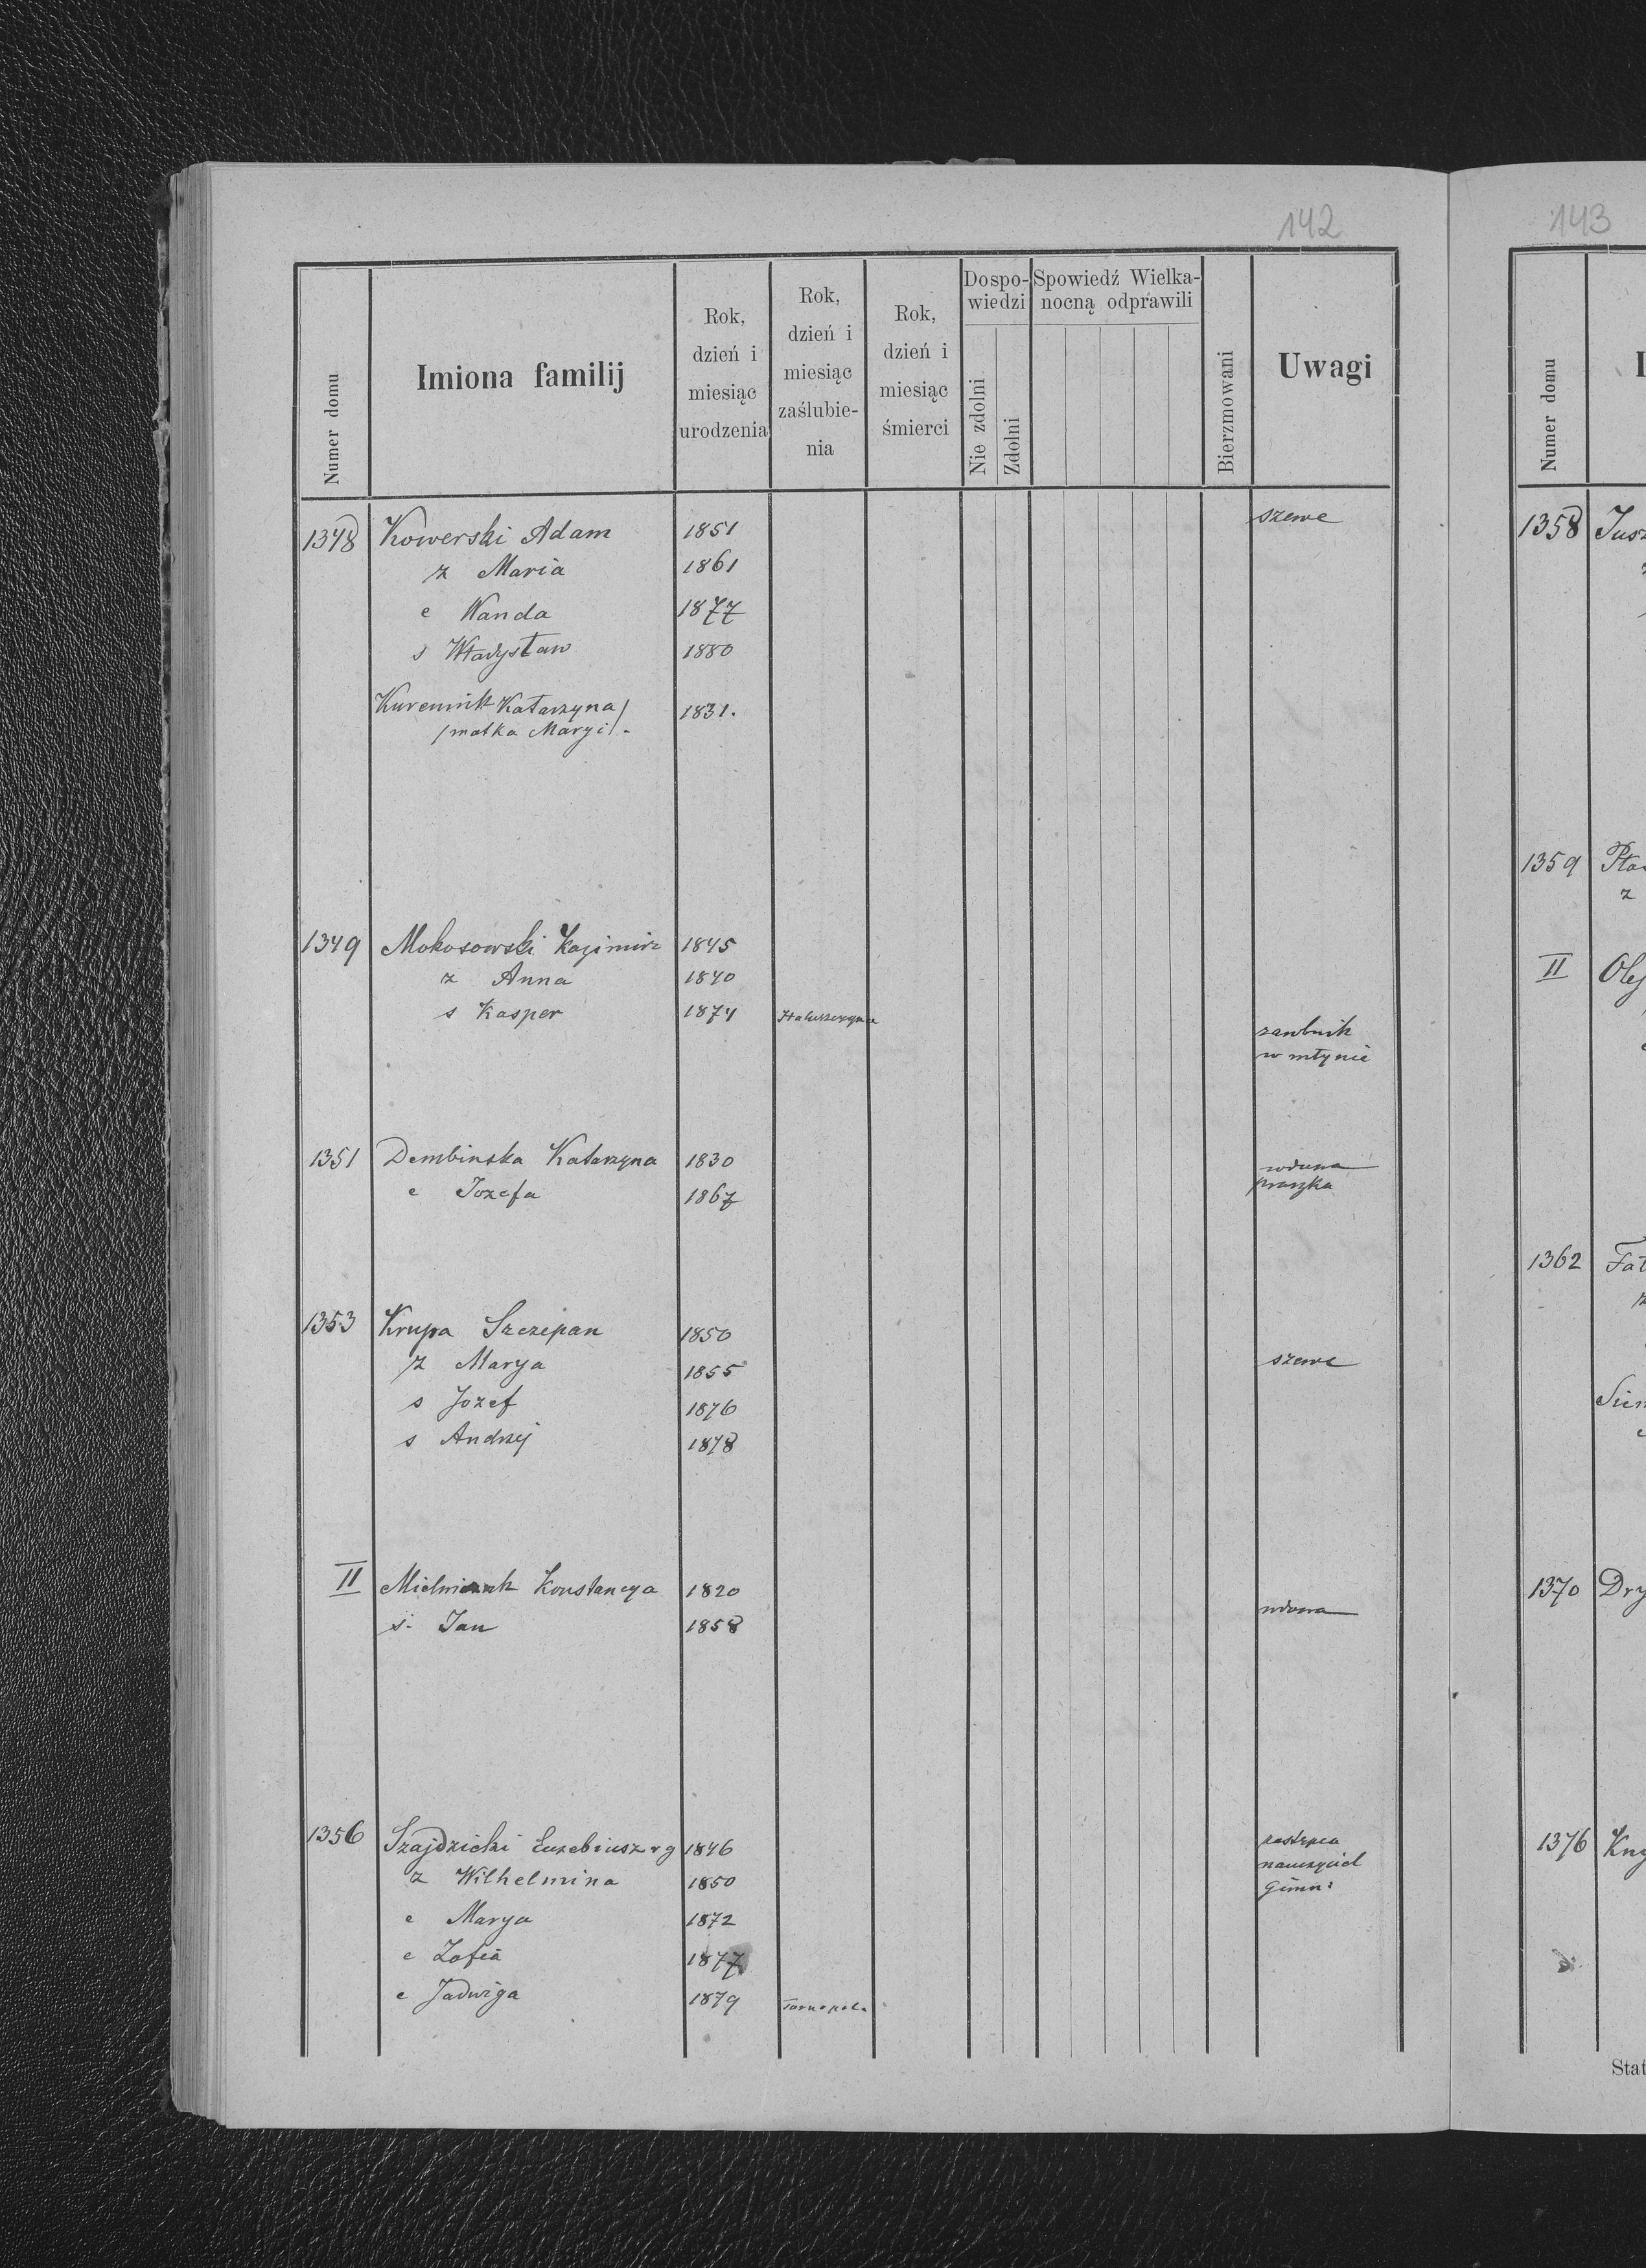 142
143
Numer domu
Imiona familij
Rok,
dzień i
miesiąc
urodzenia
Rok,
dzień i
miesiąc
zaślubie-
nia
Rok,
dzień i
miesiąc
śmierci
Dospo-
wiedzi
Nie zdolni
Zdolni
Spowiedź Wielka-
nocną odprawili
Bierzmowani
Uwagi
1348 Kowerski Adam 1851 szewc
ż Maria 1861
c Wanda 1877
s Władysław 1880
Katarzyna 1831.
/matka Maryi/.
1349 Mokosowski Kazimirz 1845
ż Anna 1840
s Kasper 1874
w młynie
1351 Dembinska Katarzyna 1830 wdowa
c Jozefa 1867 praszka
1353 Krupa Szczepan 1850
ż Marya 1855 szewc
s Jozef 1876
s Andrzej 1878
II Konstancya 1820
s. Jan 1858 wdowa
1356 Szajdzicki Euzebiusz rg 1846 zastępca
ż Wilhelmina 1850 nauczyciel
gimn:
c Marya 1872
c Zofia 1877
c Jadwiga 1879 Tarnopola
Numer domu
I
1358 Jusz
1359 Pta
z
II Olej
1362 Fat
1370 Dry
1376 Kny
Stat